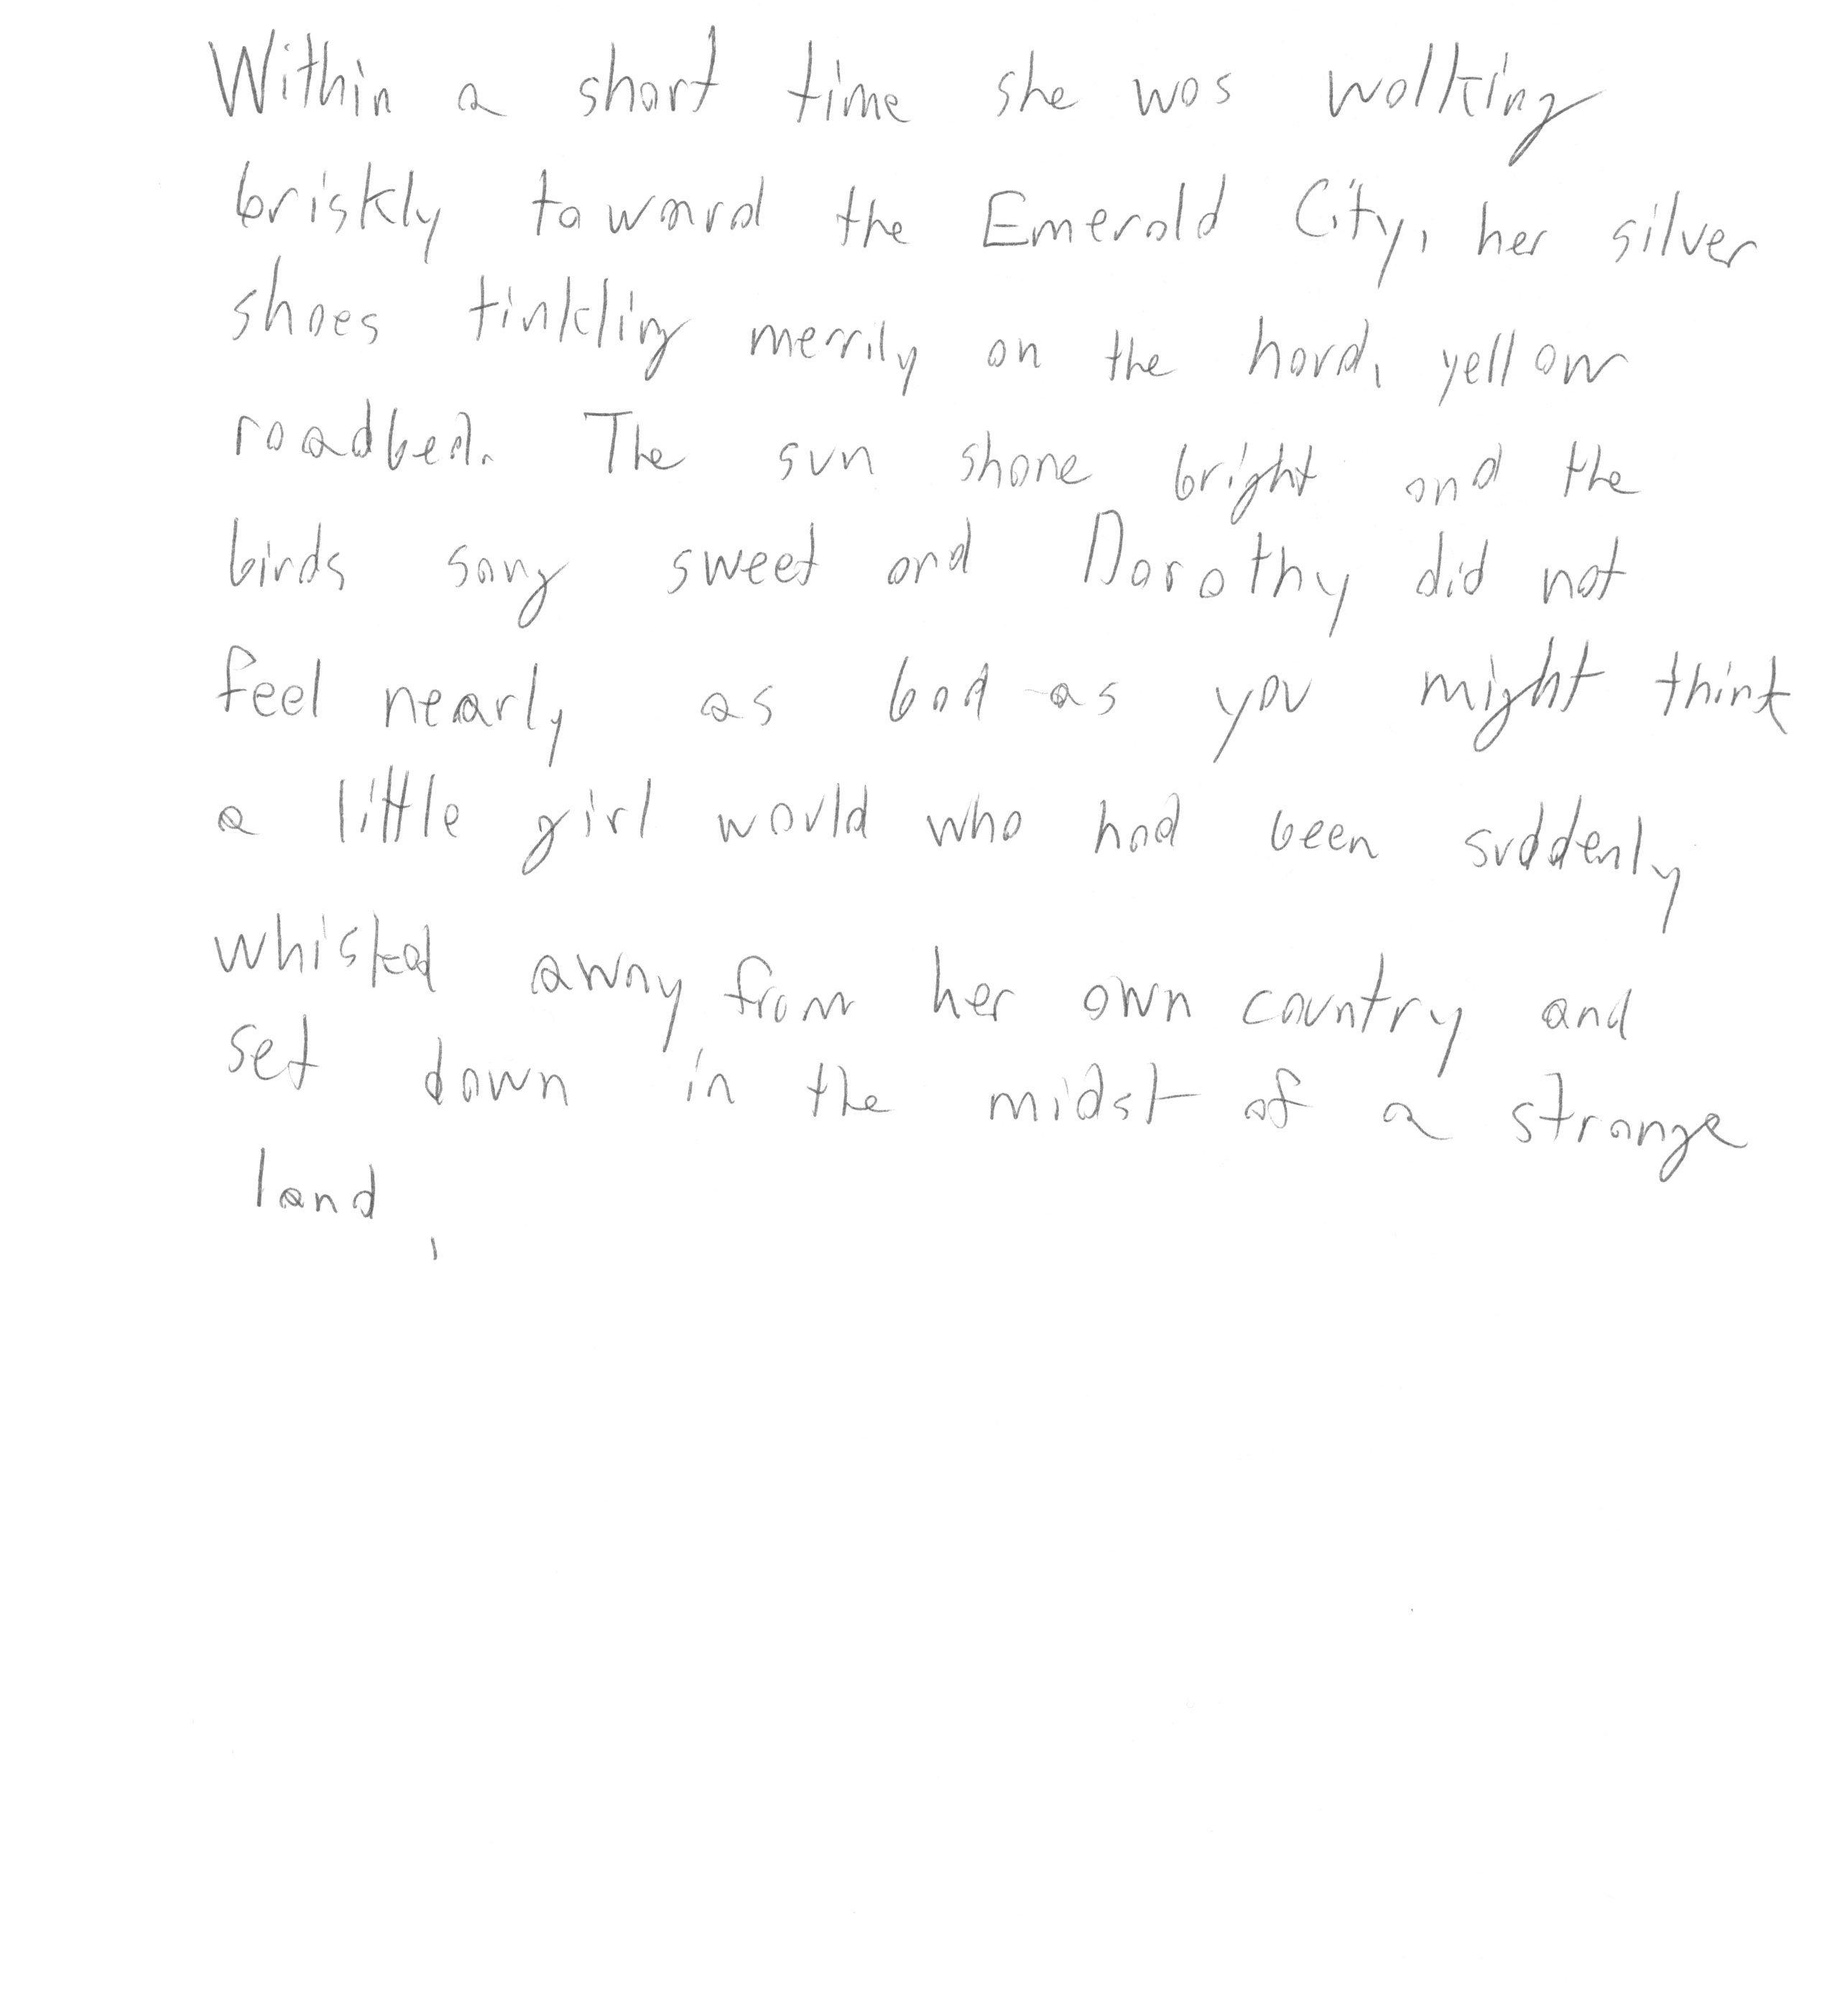 Within a short time she was walking
briskly toward the Emerald City, her silver
shoes tinkling merrily on the hard, yellow
roadbed. The sun shone bright and the
birds sang sweet and Dorothy did not
feel nearly as bad as you might think
a little girl would who had been suddenly
whisked away from her own country and
set down in the midst of a strange
land,